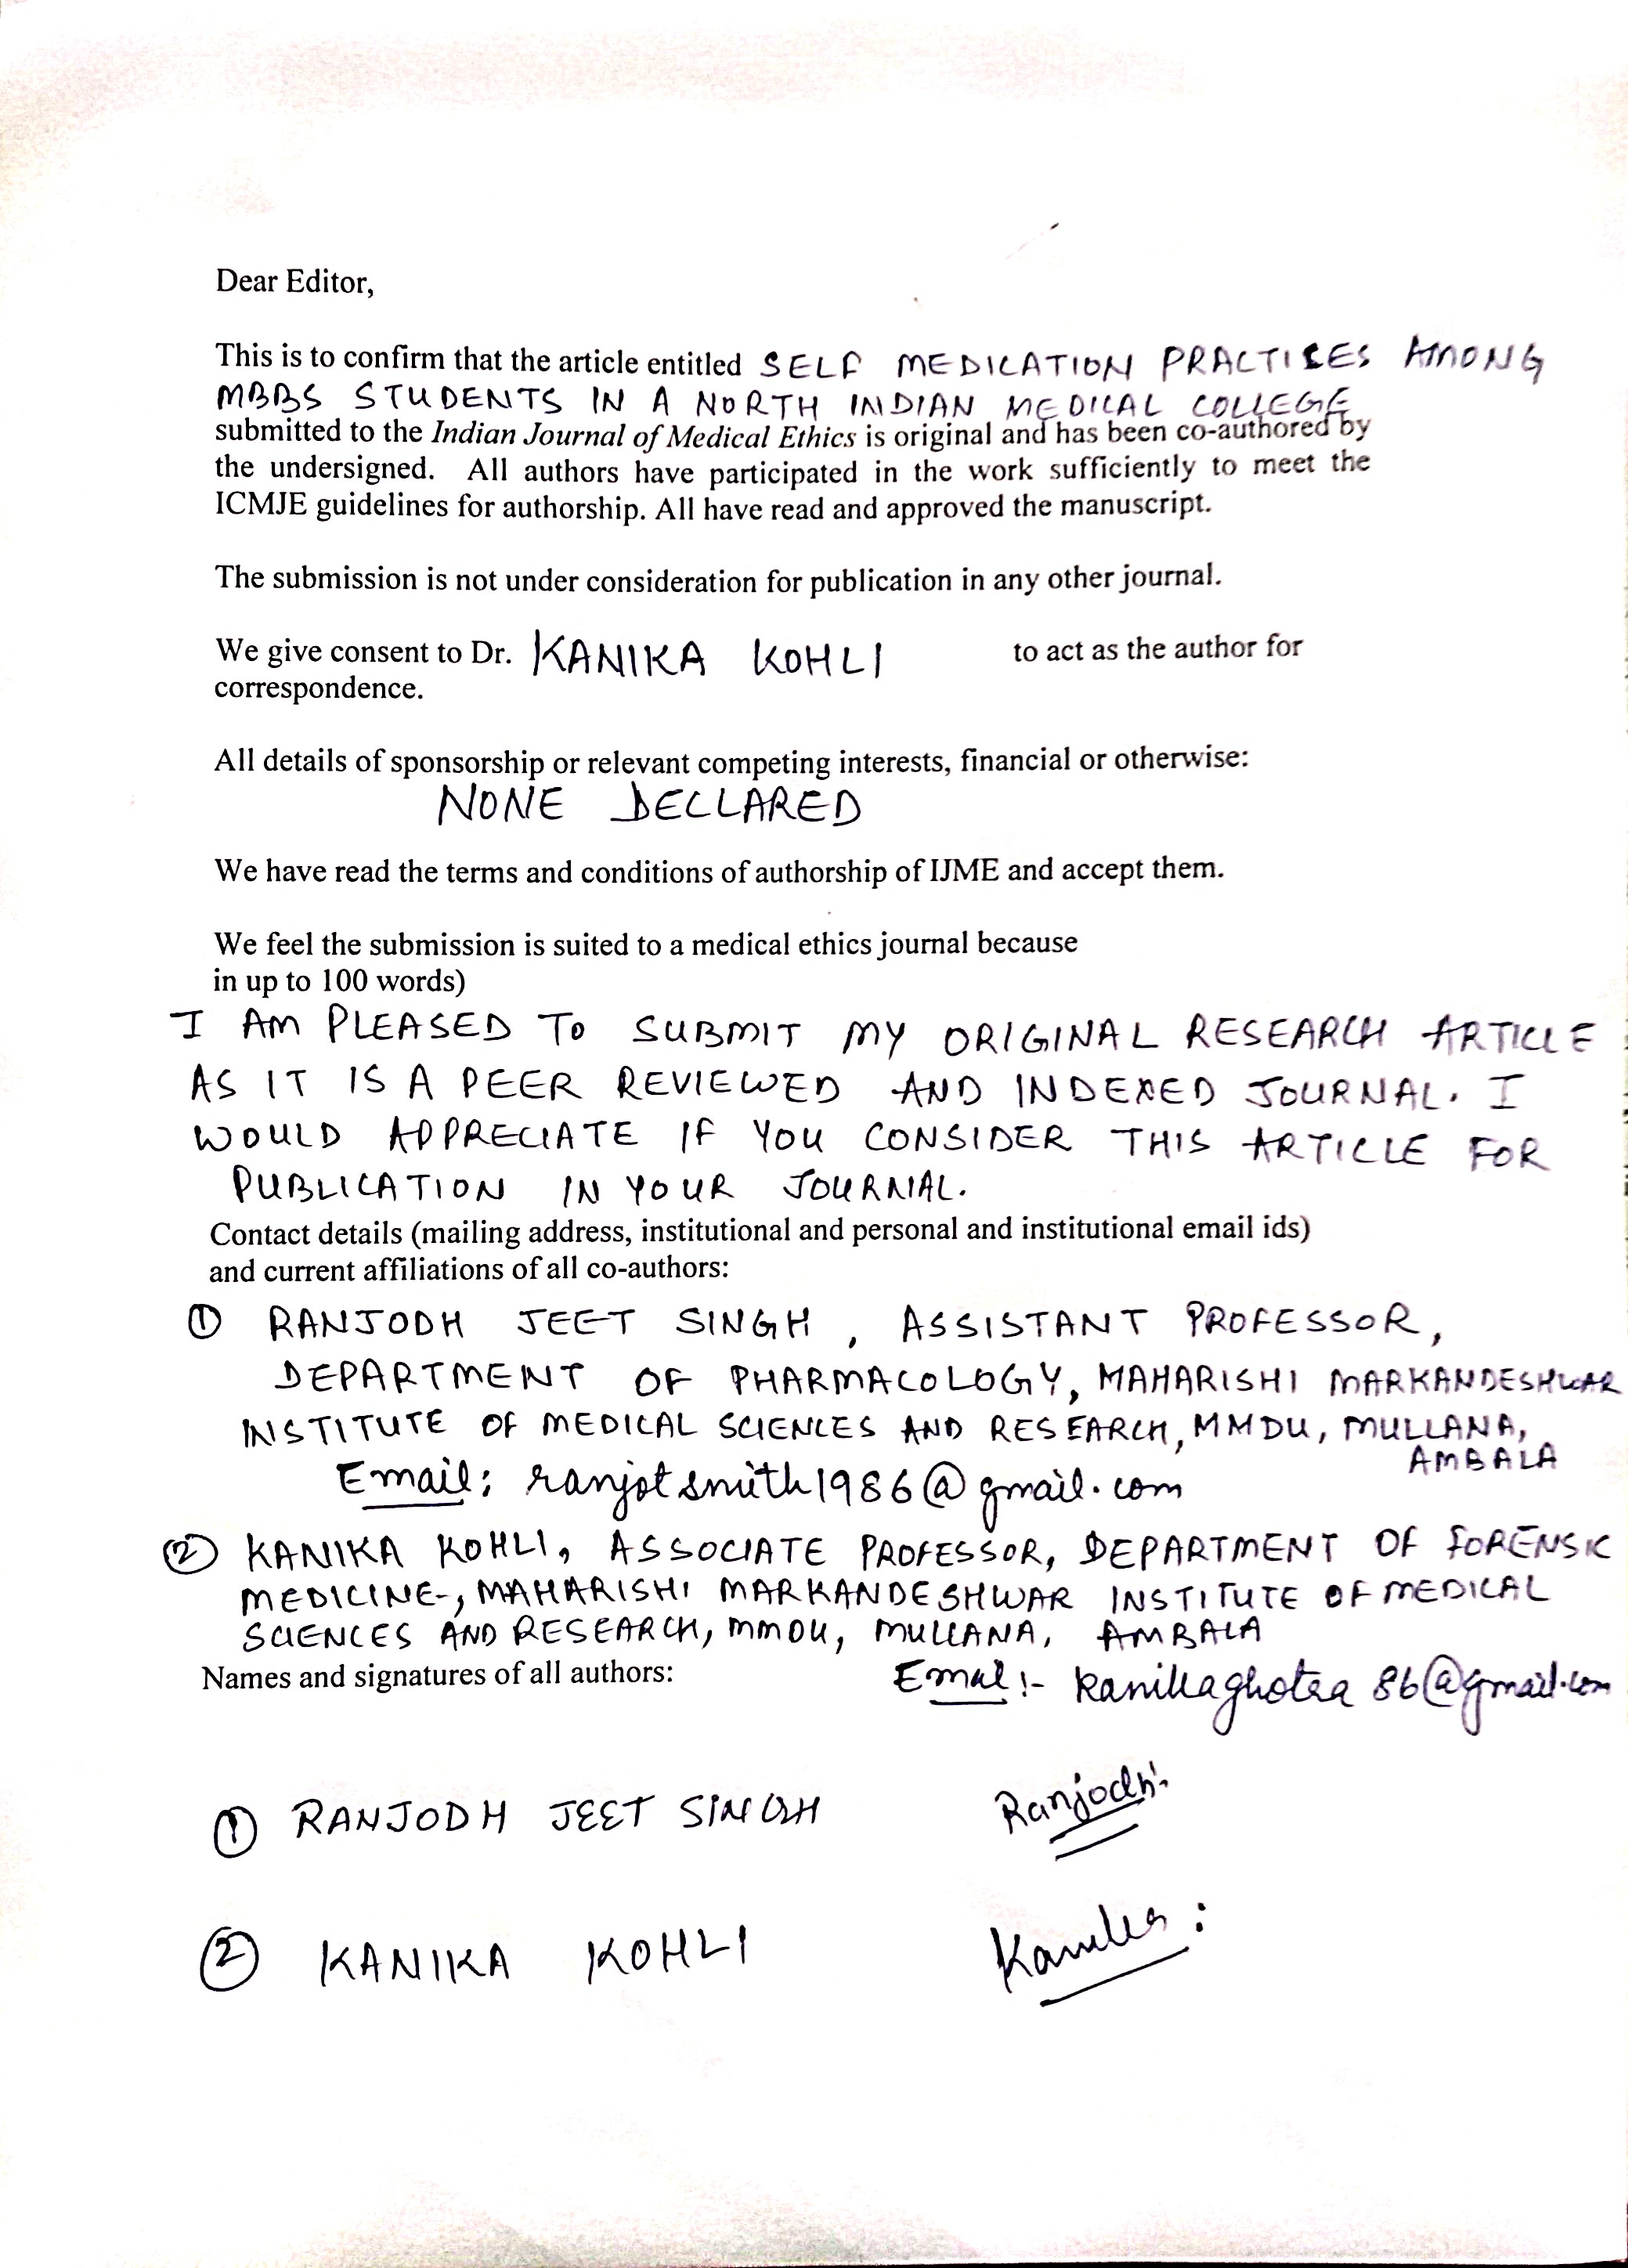 Dear Editor,
This is to confirm that the article entitled SELF MEDICATION PRACTICES AMONG
MBBS STUDENTS IN A NORTH INDIAN MEDICAL COLLEGE
submitted to the Indian Journal of Medical Ethics is original and has been co-authored by
the undersigned. All authors have participated in the work sufficiently to meet the
ICMJE guidelines for authorship. All have read and approved the manuscript.
The submission is not under consideration for publication in any other journal.
We give consent to Dr. KANIKA KOHLI to act as the author for
correspondence.
All details of sponsorship or relevant competing interests, financial or otherwise:
NONE DECLARED
We have read the terms and conditions of authorship of IJME and accept them.
We feel the submission is suited to a medical ethics journal because
in up to 100 words)
I AM PLEASED TO SUBMIT MY ORIGINAL RESEARCH ARTICLE
AS IT IS A PEER REVIEWED AND INDEXED JOURNAL. I
WOULD APPRECIATE IF YOU CONSIDER THIS ARTICLE FOR
PUBLICATION IN YOUR JOURNAL.
Contact details (mailing address, institutional and personal and institutional email ids)
and current affiliations of all co-authors:
① RANJODH JEET SINGH, ASSISTANT PROFESSOR,
DEPARTMENT OF PHARMACOLOGY, MAHARISHI MARKANDESHWAR
INSTITUTE OF MEDICAL SCIENCES AND RESEARCH, MMDU, MULLANA,
AMBALA
Email: ranjotsmith1986@gmail.com
② KANIKA KOHLI, ASSOCIATE PROFESSOR, DEPARTMENT OF FORENSIC
MEDICINE, MAHARISHI MARKANDESHWAR INSTITUTE OF MEDICAL
SCIENCES AND RESEARCH, MMDU, MULLANA, AMBALA
Names and signatures of all authors: Email:- kanikaghotra86@gmail.com
① RANJODH JEET SINGH Ranjodh
② KANIKA KOHLI Kanika